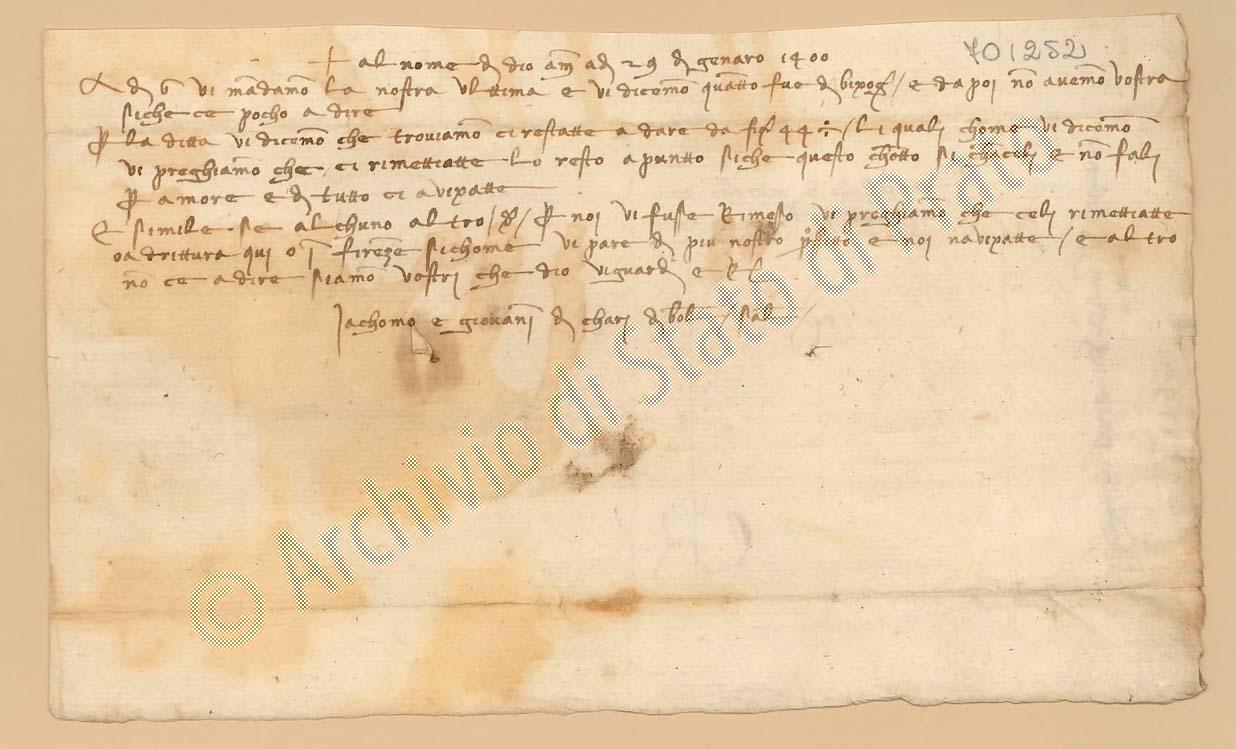 701252
+ al nome d dio am̄ ad 29 d genaro 1400
A d 6 vi mādamo la nostra ulttima e vi dicemo quātto fue d bixog / e da poi nō avemo vostra
siche ce pocho a dire
P la ditta vi dicemo che troviamo ci restatte a dare da 44 / li quali chome vi dicemo
vi preghiamo che ci rimettiatte lo resto a puntto siche questo chōtto si chāceli e nō fali
P amore e d tutto ci avixatte
E simile se alchuno altro / P noi vi fusse Rimesso vi preghiamo che celi rimettiatte
o a drittura qui o ī firenze sichome vi pare d piu nostro e noi navixatte / e altro
nō ce a dire siamo vostri che dio vi guardi e
Jachomo e giovani d chari d bol / sal
© Archivio di Stato di Prato